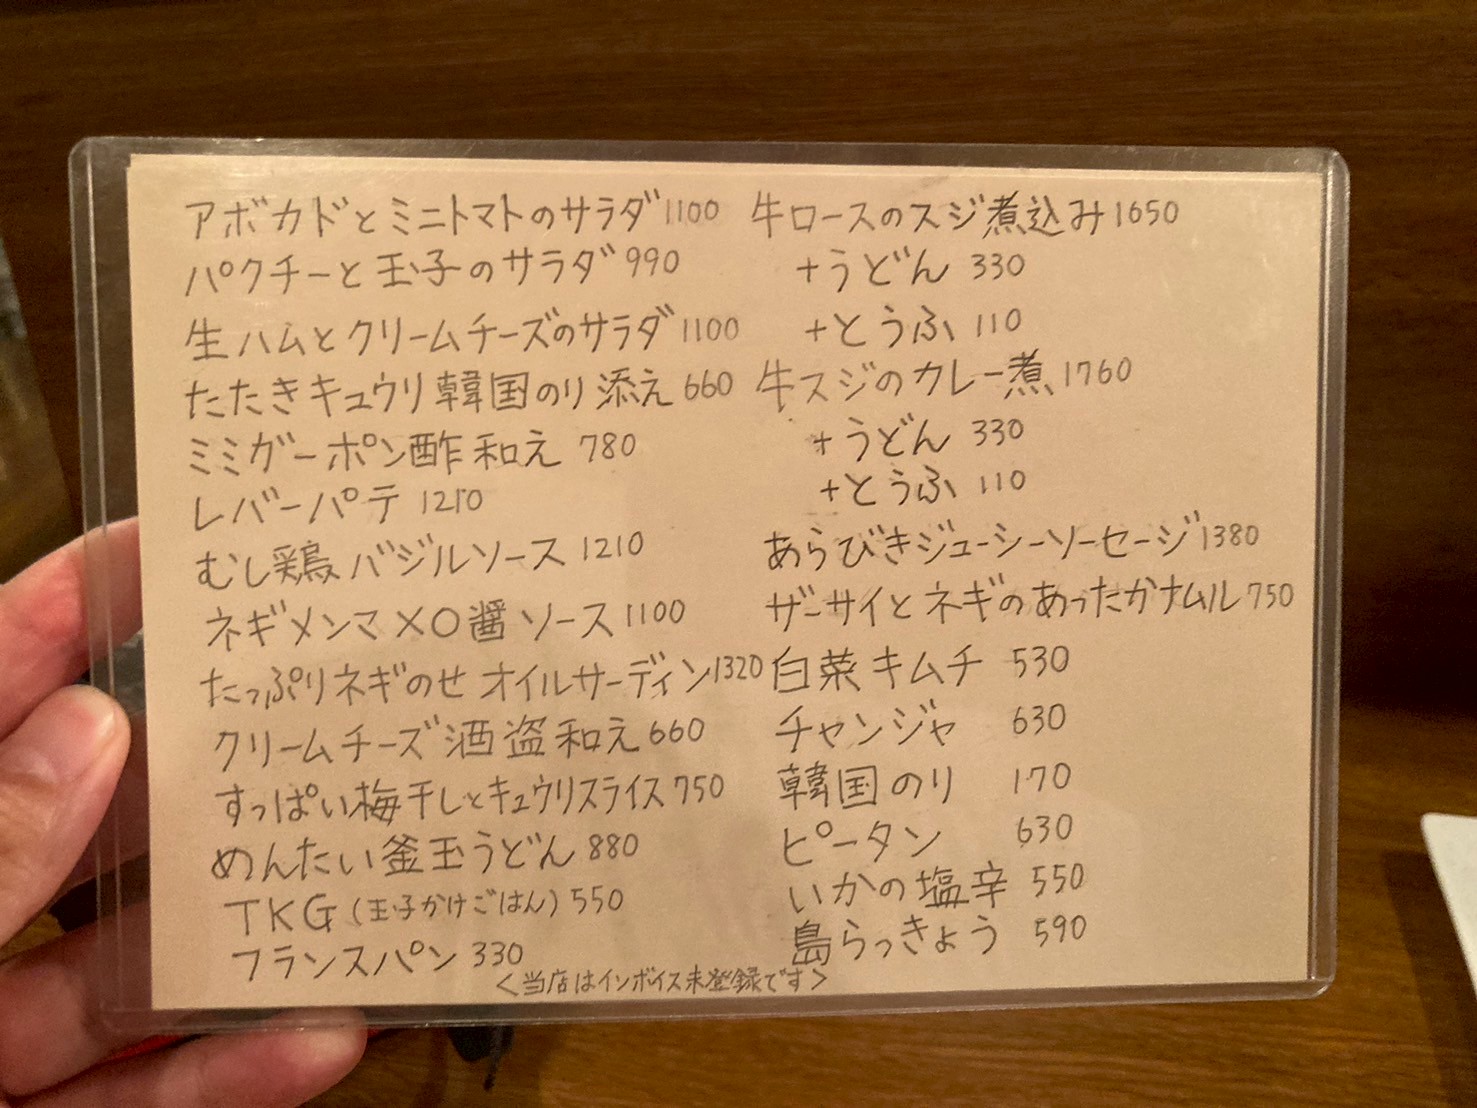 アボカドとミニトマトのサラダ 1100
パクチーと玉子のサラダ 990
生ハムとクリームチーズのサラダ 1100
たたきキュウリ韓国のり添え 660
ミミガーポン酢和え 780
レバーパテ 1210
むし鶏バジルソース 1210
ネギメンマXO醤ソース 1100
たっぷりネギのせオイルサーディン 1320
クリームチーズ酒盗和え 660
すっぱい梅干しとキュウリスライス 750
めんたい釜玉うどん 880
TKG (玉子かけごはん) 550
フランスパン 330
牛ロースのスジ煮込み 1650
+うどん 330
+とうふ 110
牛スジのカレー煮 1760
+うどん 330
+とうふ 110
あらびきジューシーソーセージ 1380
ザーサイとネギのあったかナムル 750
白菜キムチ 530
チャンジャ 630
韓国のり 170
ピータン 630
いかの塩辛 550
島らっきょう 590
<当店はインボイス未登録です>